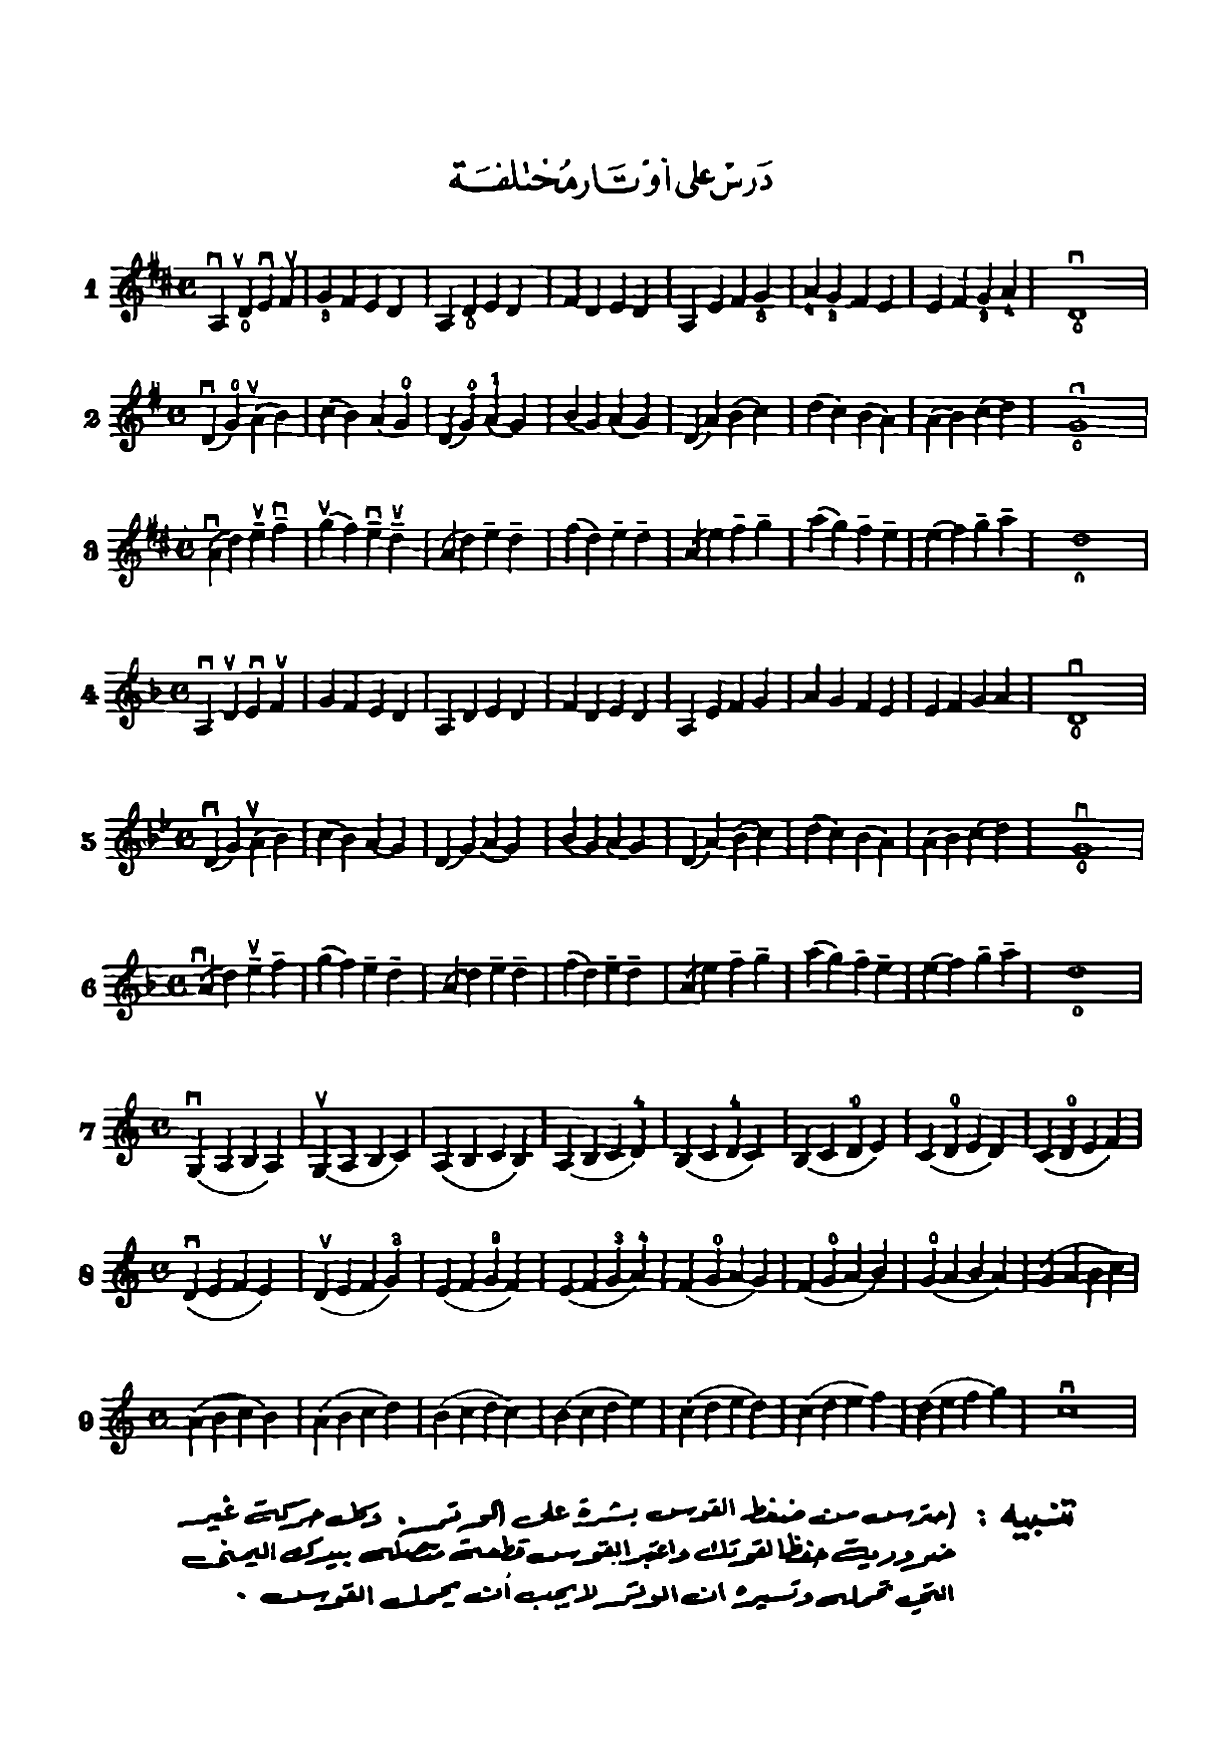 دَرسْ على أوْتَار مُختلفَة
1
2
3
4
5
6
7
8
9
تنبيه : احترس من ضغط القوس بشدة على الوتر . وكل حركة غير
ضرورية حفظا لقوتك واعتبر القوس قطعة متصلة بيدك اليمنى
التي تحمله وتسيره ان الوتر لا يجب أن يحمل القوس .